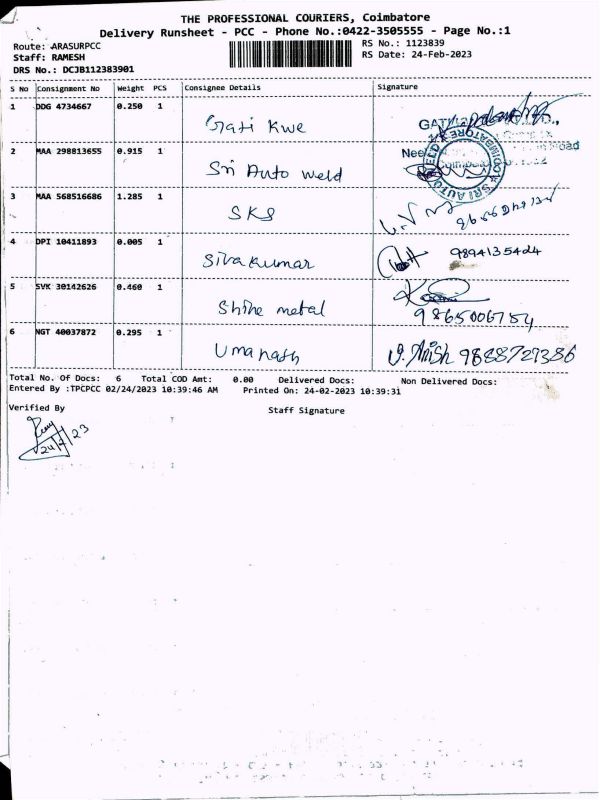 THE PROFESSIONAL COURIERS, Coimbatore
Delivery Runsheet - PCC - Phone No.:0422-3505555 - Page No.:1
Route: ARASURPCC
Staff: RAMESH
DRS No.: DCJB112383901
RS No.: 1123839
RS Date: 24-Feb-2023
S No Consignment No Weight PCS Consignee Details Signature
1 DDG 4734667 0.250 1 Gati Kwe
2 MAA 298813655 0.915 1 Sri Auto weld
3 MAA 568516686 1.285 1 SKS
4 DPI 10411893 0.005 1 Siva kumar 9894135424
5 SVK 30142626 0.460 1 Shine metal 9865006754
6 NGT 40037872 0.295 1 Umanath 9888727386
Total No. Of Docs: 6 Total COD Amt: 0.00 Delivered Docs: Non Delivered Docs:
Entered By :TPCPCC 02/24/2023 10:39:46 AM Printed On: 24-02-2023 10:39:31
Verified By Staff Signature
24/2/23